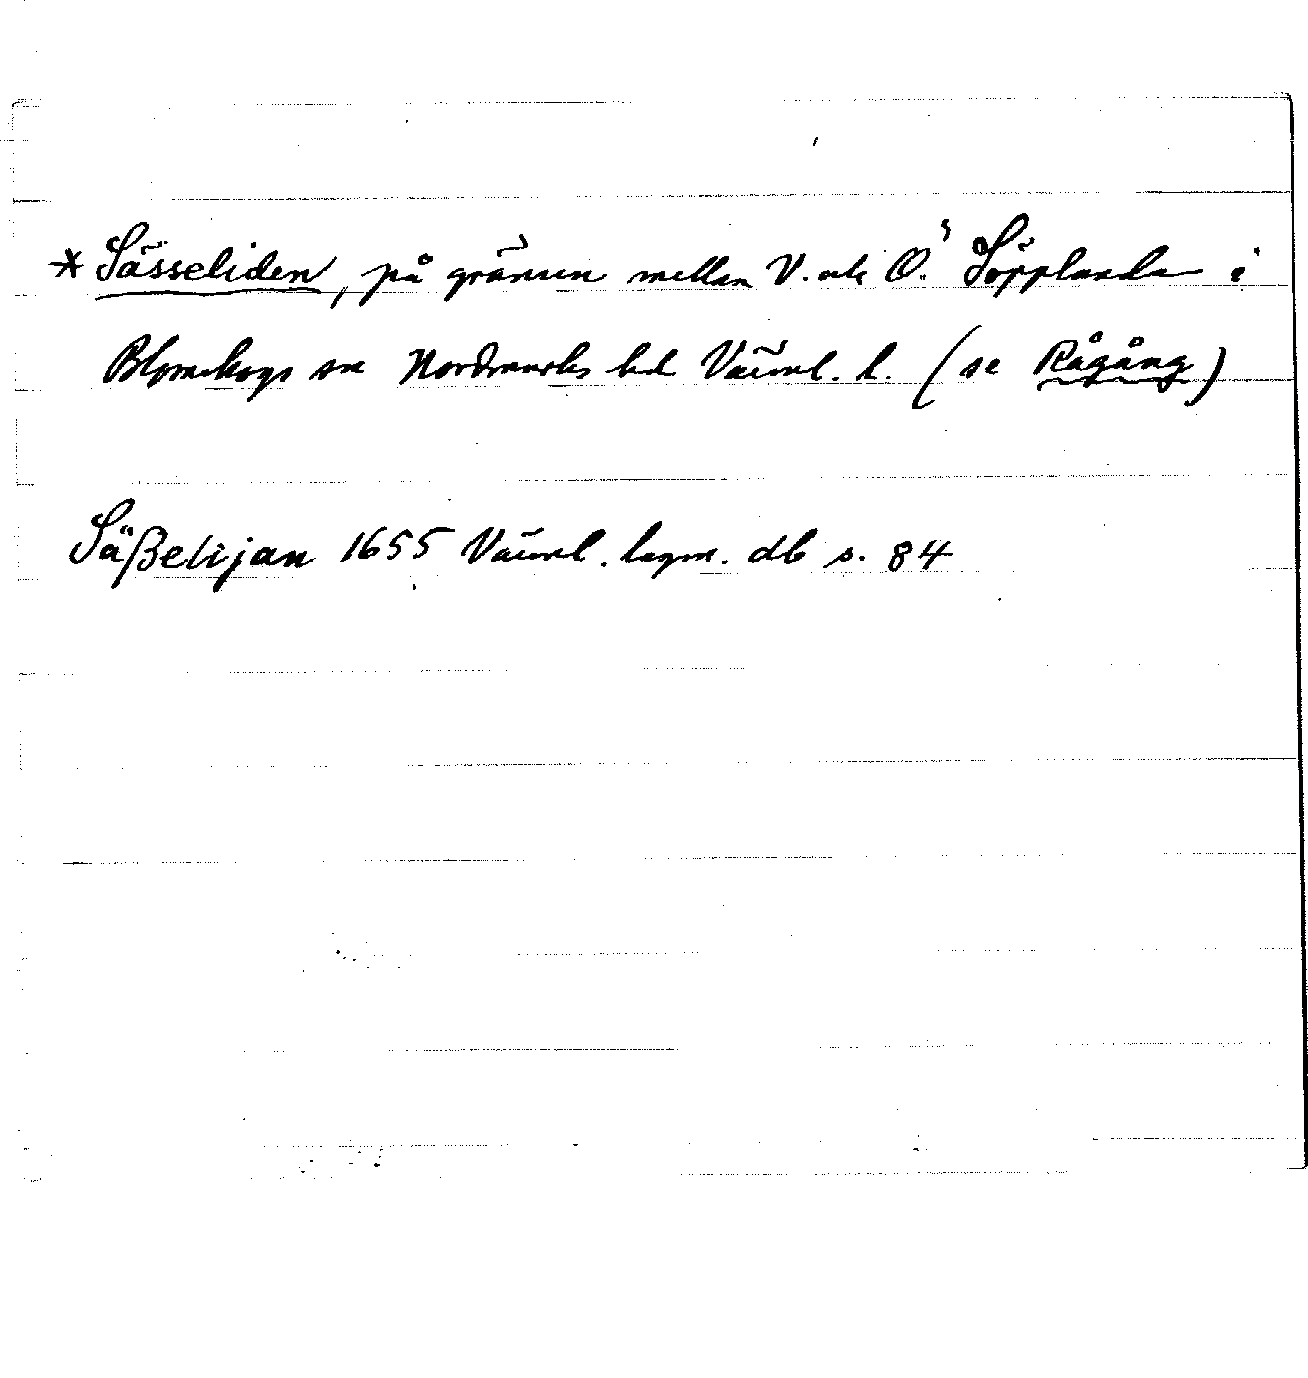 * Sässeliden, på gränsen mellan V. och Ö. Söpplanda i
Blomskogs sn Nordmarks hd Värml. l. (se Rågång)
Säßelijan 1655 Värml. lagm. db s. 84